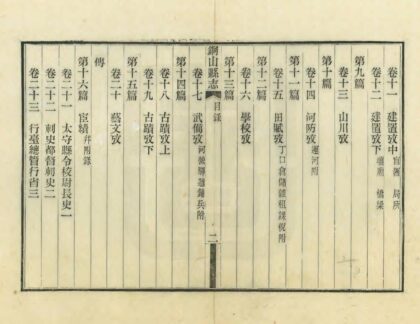 卷十一 建置攷中 官署 局所
卷十二 建置攷下 壇廟 橋梁
第九篇
卷十三 山川攷
第十篇
卷十四 河防攷 運河附
第十一篇
卷十五 田賦攷 丁口倉儲雜租課稅附
第十二篇
卷十六 學校攷
第十三篇
銅山縣志 目錄 二
卷十七 武備攷 河營驛遞鋪兵附
第十四篇
卷十八 古蹟攷上
卷十九 古蹟攷下
第十五篇
卷二十 藝文攷
傳
第十六篇 宦績 幷附錄
卷二十一 太守縣令校尉長史一
卷二十二 刺史都督刺史二
卷二十三 行臺總管行省三